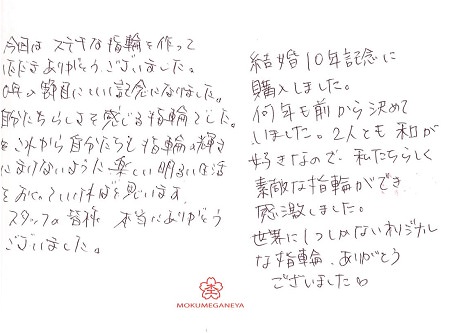 今回はステキな指輪を作って
いただきありがとうございました。
10年の節目にいい記念になりました。
自分たちらしさを感じる指輪でした。
これから自分たちも指輪の輝き
にまけないように楽しい明るい生活
を
いければと思います
スタッフの皆様 本当にありがとう
ございました。
結婚10年記念に
購入しました。
何年も前から決めて
いました。2人とも和が
好きなので、私たちらしく
素敵な指輪ができ
感激しました。
世界に1つしかないオリジナル
な指輪、ありがとう
ございました
MOKUMEGANEYA